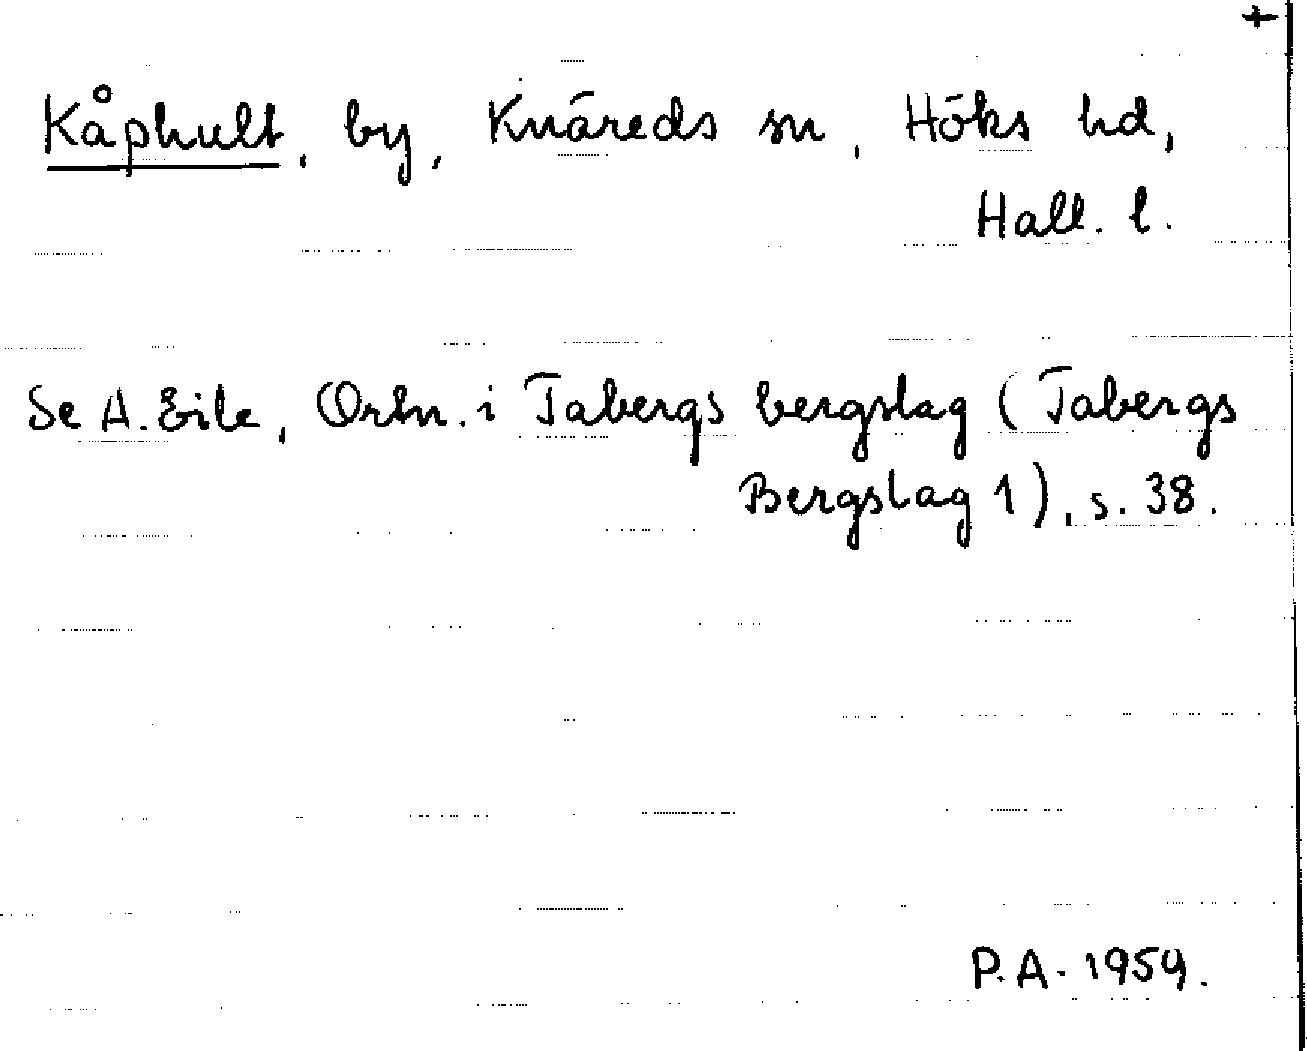 +
Kåphult, by, Knäreds sn, Höks hd,
Hall. l.
Se A. Eile, Ortn. i Tabergs bergslag (Tabergs
Bergslag 1), s. 38.
P.A. 1959.